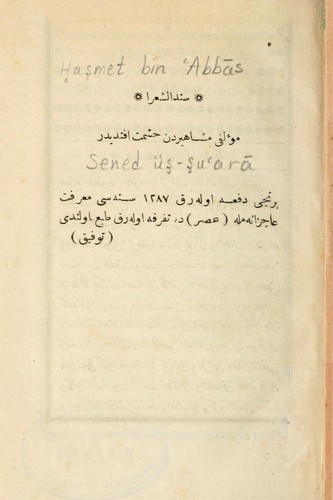 Ḥaşmet bin ʿAbbās
❋ سندالشعرا ❋
مؤلفی مشاهیردن حشمت افندیدر
Sened üş-şuʿarā
برنجی دفعه اوله‌رق ١٢٨٧ سنه‌سی معرفت
عاجزانه‌مله ( عصر ) ده تفرقه اوله‌رق طبع اولندی
( توفیق )